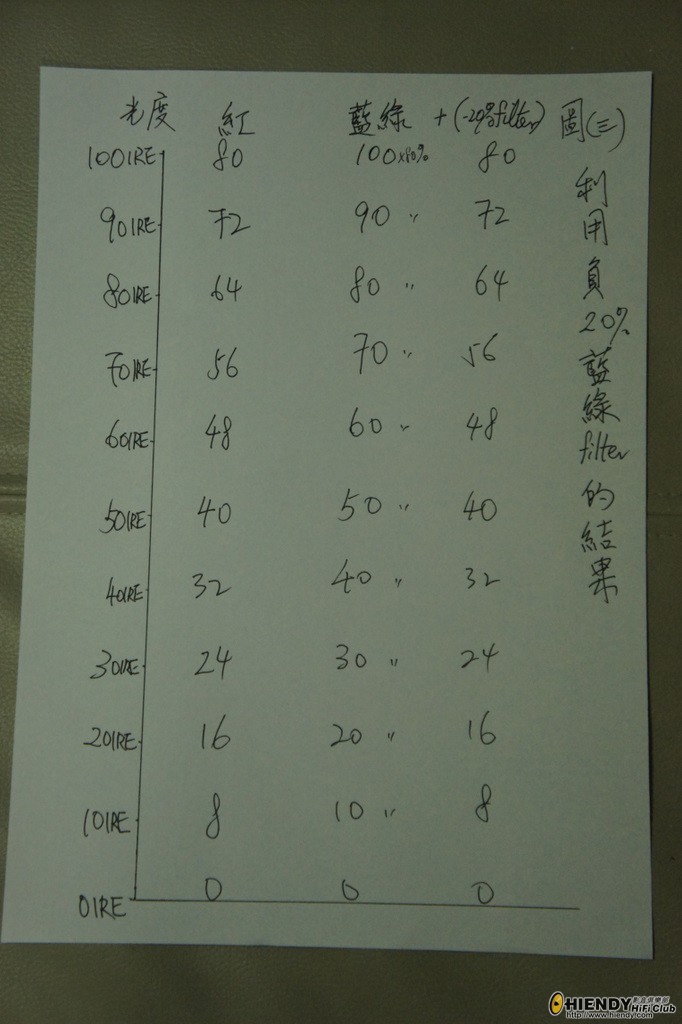 光度 紅 藍綠 +(-20%filter) 圖(三)
100IRE 80 100x80% 80
90IRE 72 90 " 72
80IRE 64 80 " 64
70IRE 56 70 " 56
60IRE 48 60 " 48
50IRE 40 50 " 40
40IRE 32 40 " 32
30IRE 24 30 " 24
20IRE 16 20 " 16
10IRE 8 10 " 8
0IRE 0 0 0
利用負20%藍綠filter的結果
HIENDY 影音俱樂部 HiFi Club
http://www.hiendy.com